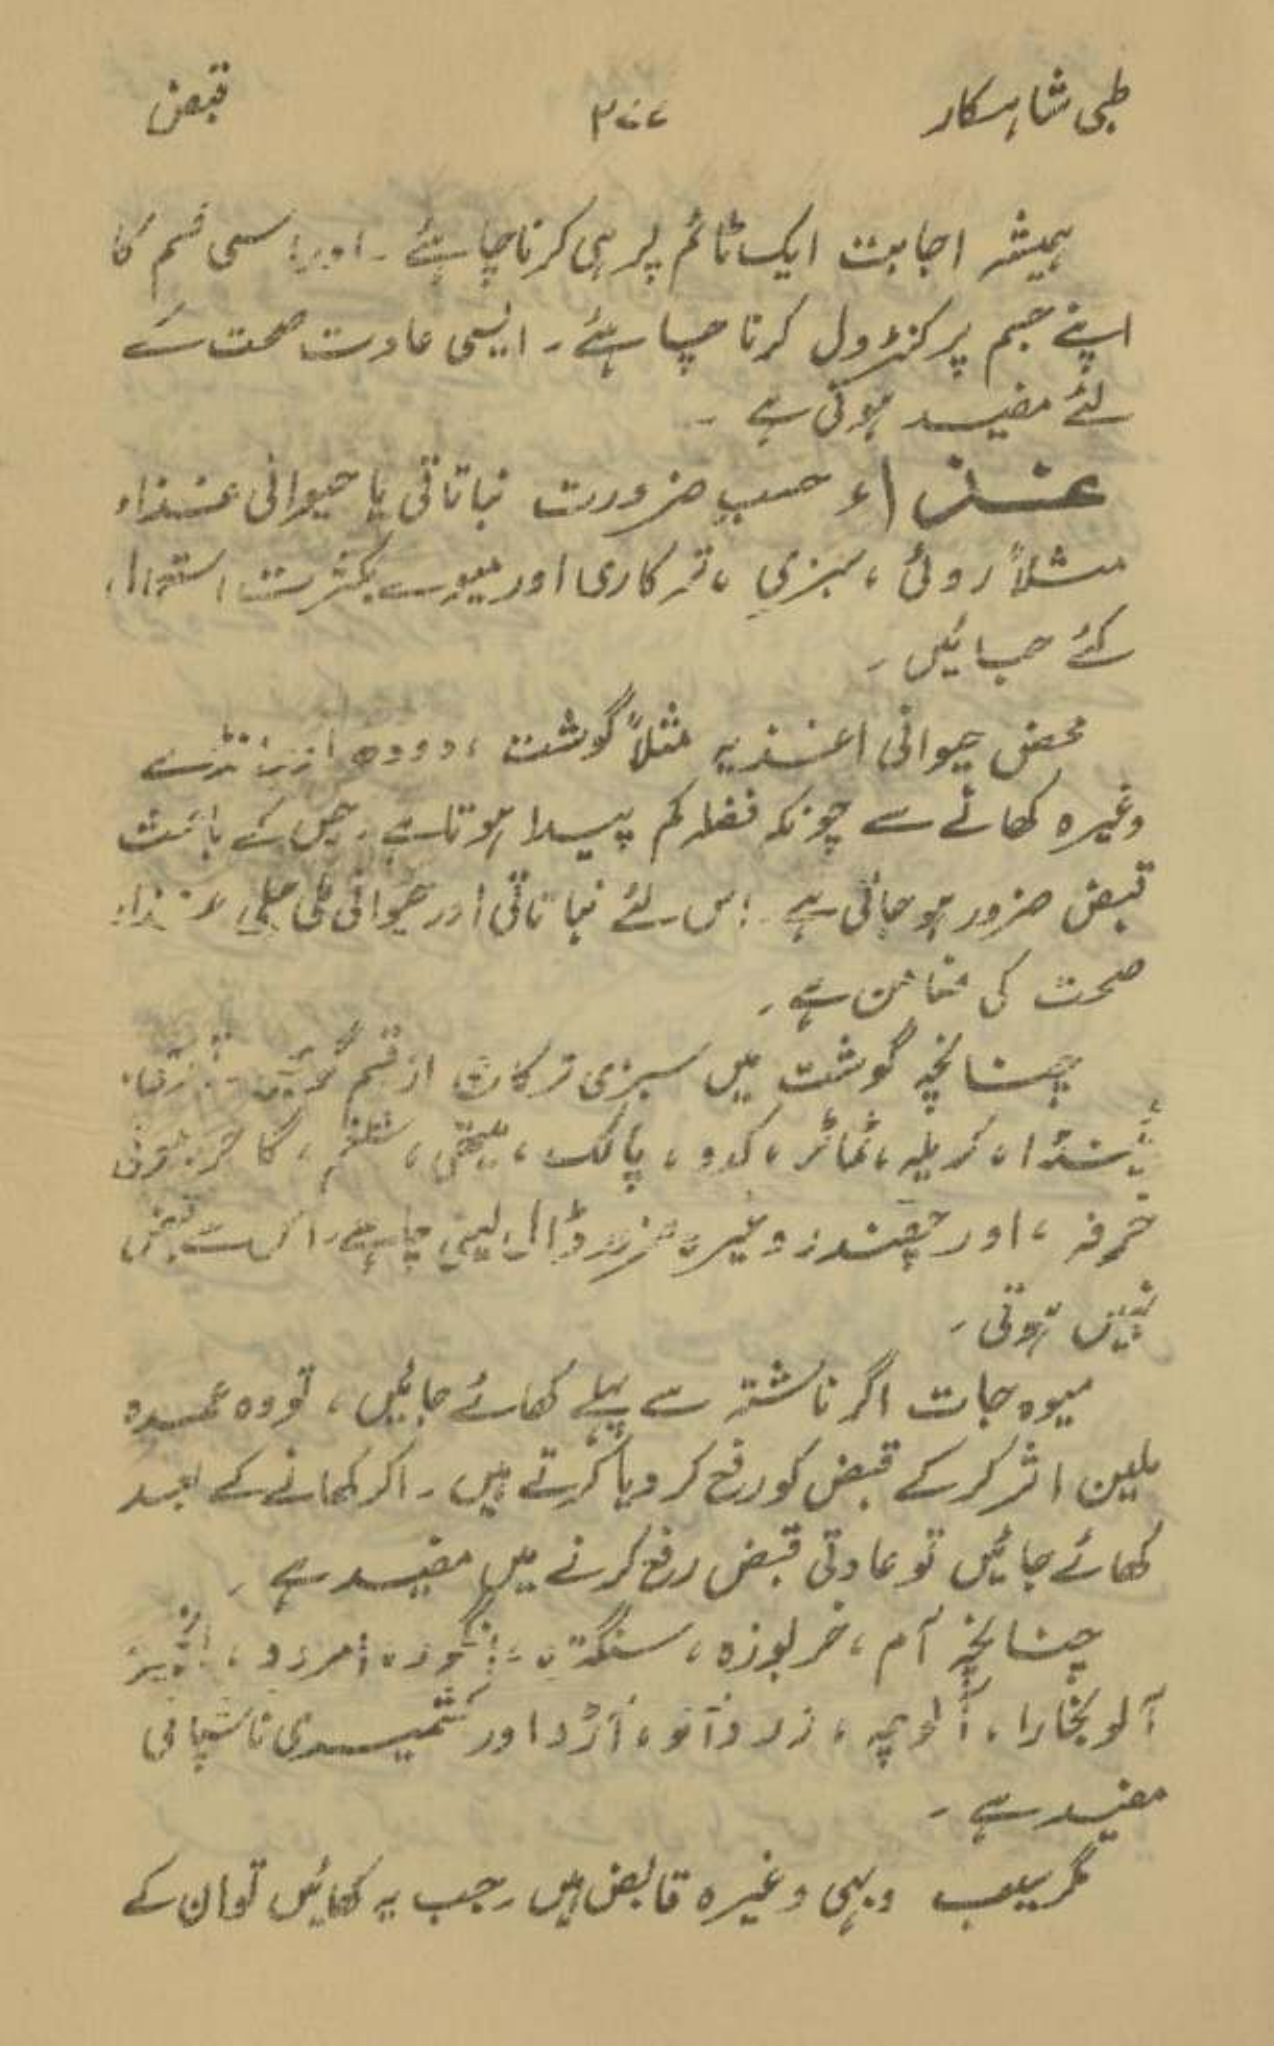 طبی شاہکار ۳۷۷ قبض
ہمیشہ اجابت ایک ٹائم پر ہی کرنا چاہئے ۔ اور اسی قسم کا
اپنے جسم پر کنڑول کرنا چاہئے ۔ ایسی عادت صحت کے
لئے مفید ہوتی ہے ۔
غذاء حسبِ ضرورت نباتاتی یا حیوانی غذاء
مثلاً روٹی ، سبزی ، ترکاری اور میوے بکثرت استعمال
کئے جائیں ۔
محض حیوانی اغذیہ مثلاً گوشت ، دودھ اور انڈے
وغیرہ کھانے سے چونکہ فضلہ کم پیدا ہوتا ہے ۔ جس کے باعث
قبض ضرور ہو جاتی ہے ۔ اس لئے نباتاتی اور حیوانی ملی جلی غذاء
صحت کی ضامن ہے ۔
چنانچہ گوشت میں سبزی ترکاری از قسم
ٹینڈا ، کریلہ ، ٹماٹر ، کدو ، پالک ، میتھی ، شلغم ، گاجر
خرفہ ، اور چقندر وغیرہ ضرور ڈال لینی چاہئے ۔ اس سے قبض
نہیں ہوتی ۔
میوہ جات اگر ناشتہ سے پہلے کھائے جائیں ، تو وہ عمدہ
ملین اثر کر کے قبض کو رفع کر دیا کرتے ہیں ۔ اگر کھانے کے بعد
کھائے جائیں تو عادتی قبض رفع کرنے میں مفید ہے ۔
چنانچہ آم ، خربوزہ ، سنگترہ ، انگور ، امرود ، انجیر
آلو بخارا ، آلوچہ ، زرد آلو ، آڑو اور کشمیری ناشپاتی
مفید ہے ۔
مگر سیب و بہی وغیرہ قابض ہیں ۔ جب یہ کھائیں تو ان کے